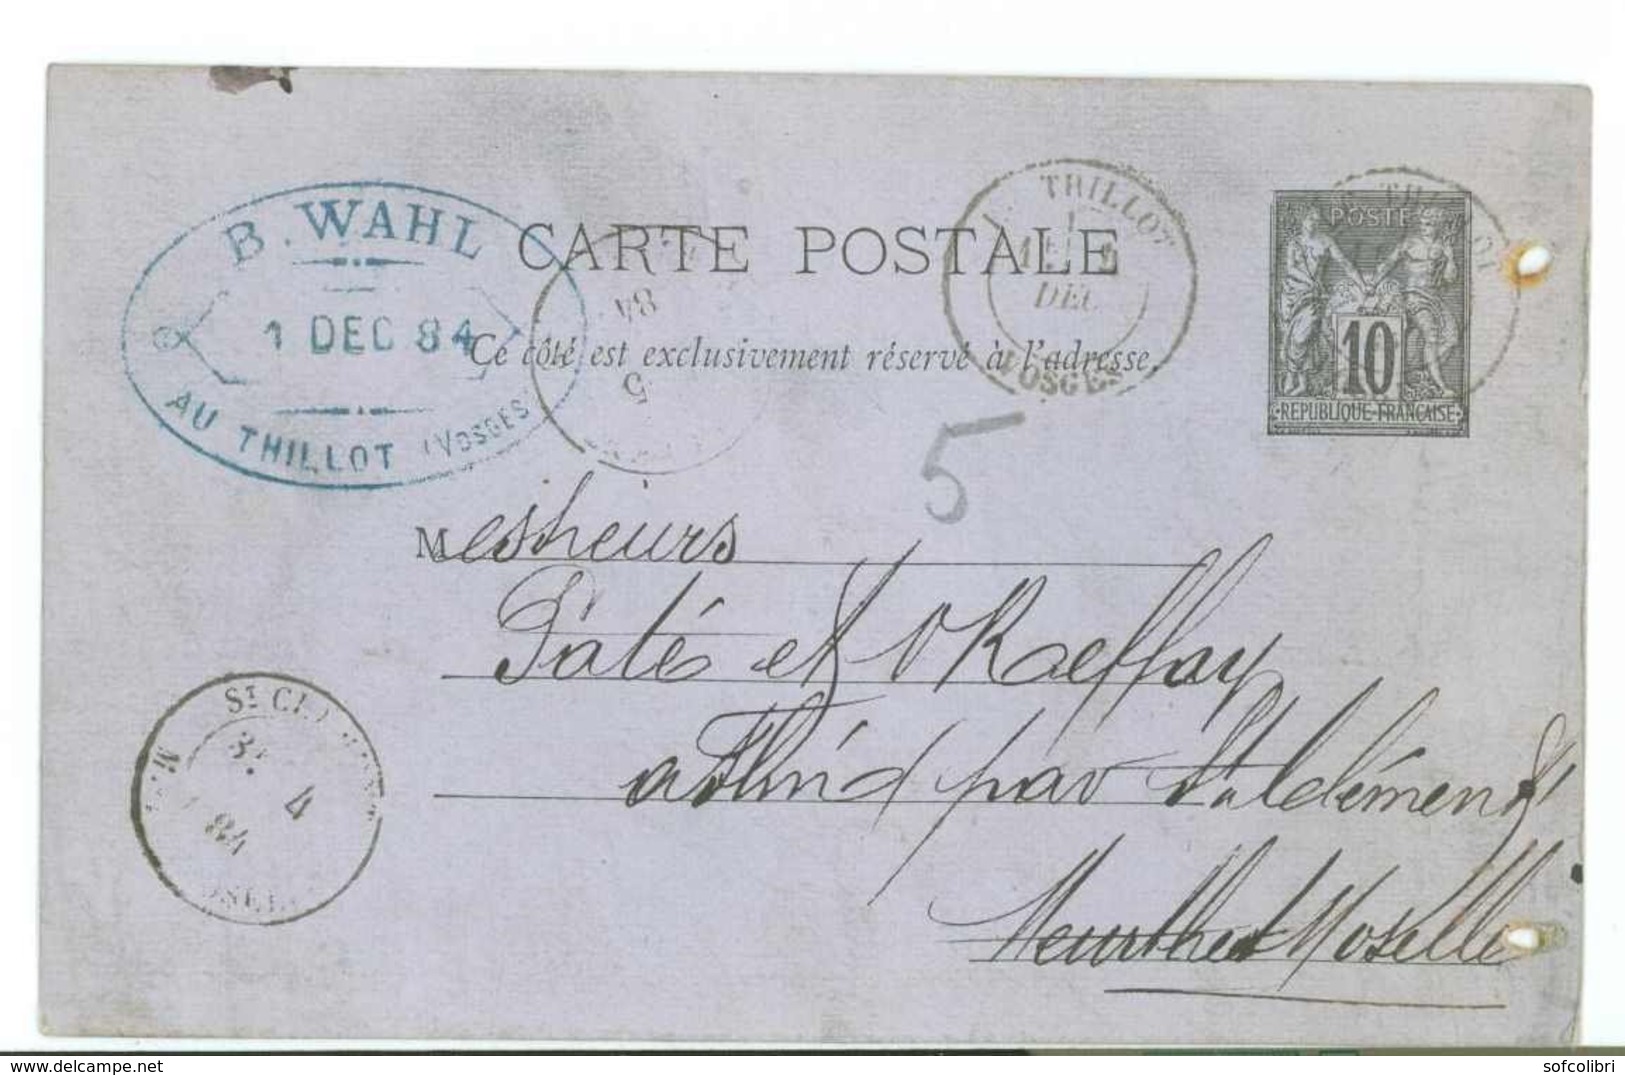 B. WAHL
1 DEC 84
AU THILLOT (VOSGES
CARTE POSTALE
Ce côté est exclusivement réservé à l'adresse.
THILLOT
DEC
VOSGES
POSTE
10
REPUBLIQUE FRANCAISE
84
5
5
Messieurs
Paté et Raeffay
par St Clément
Meurthe et Moselle
ST CL
4
84
sofcolibri